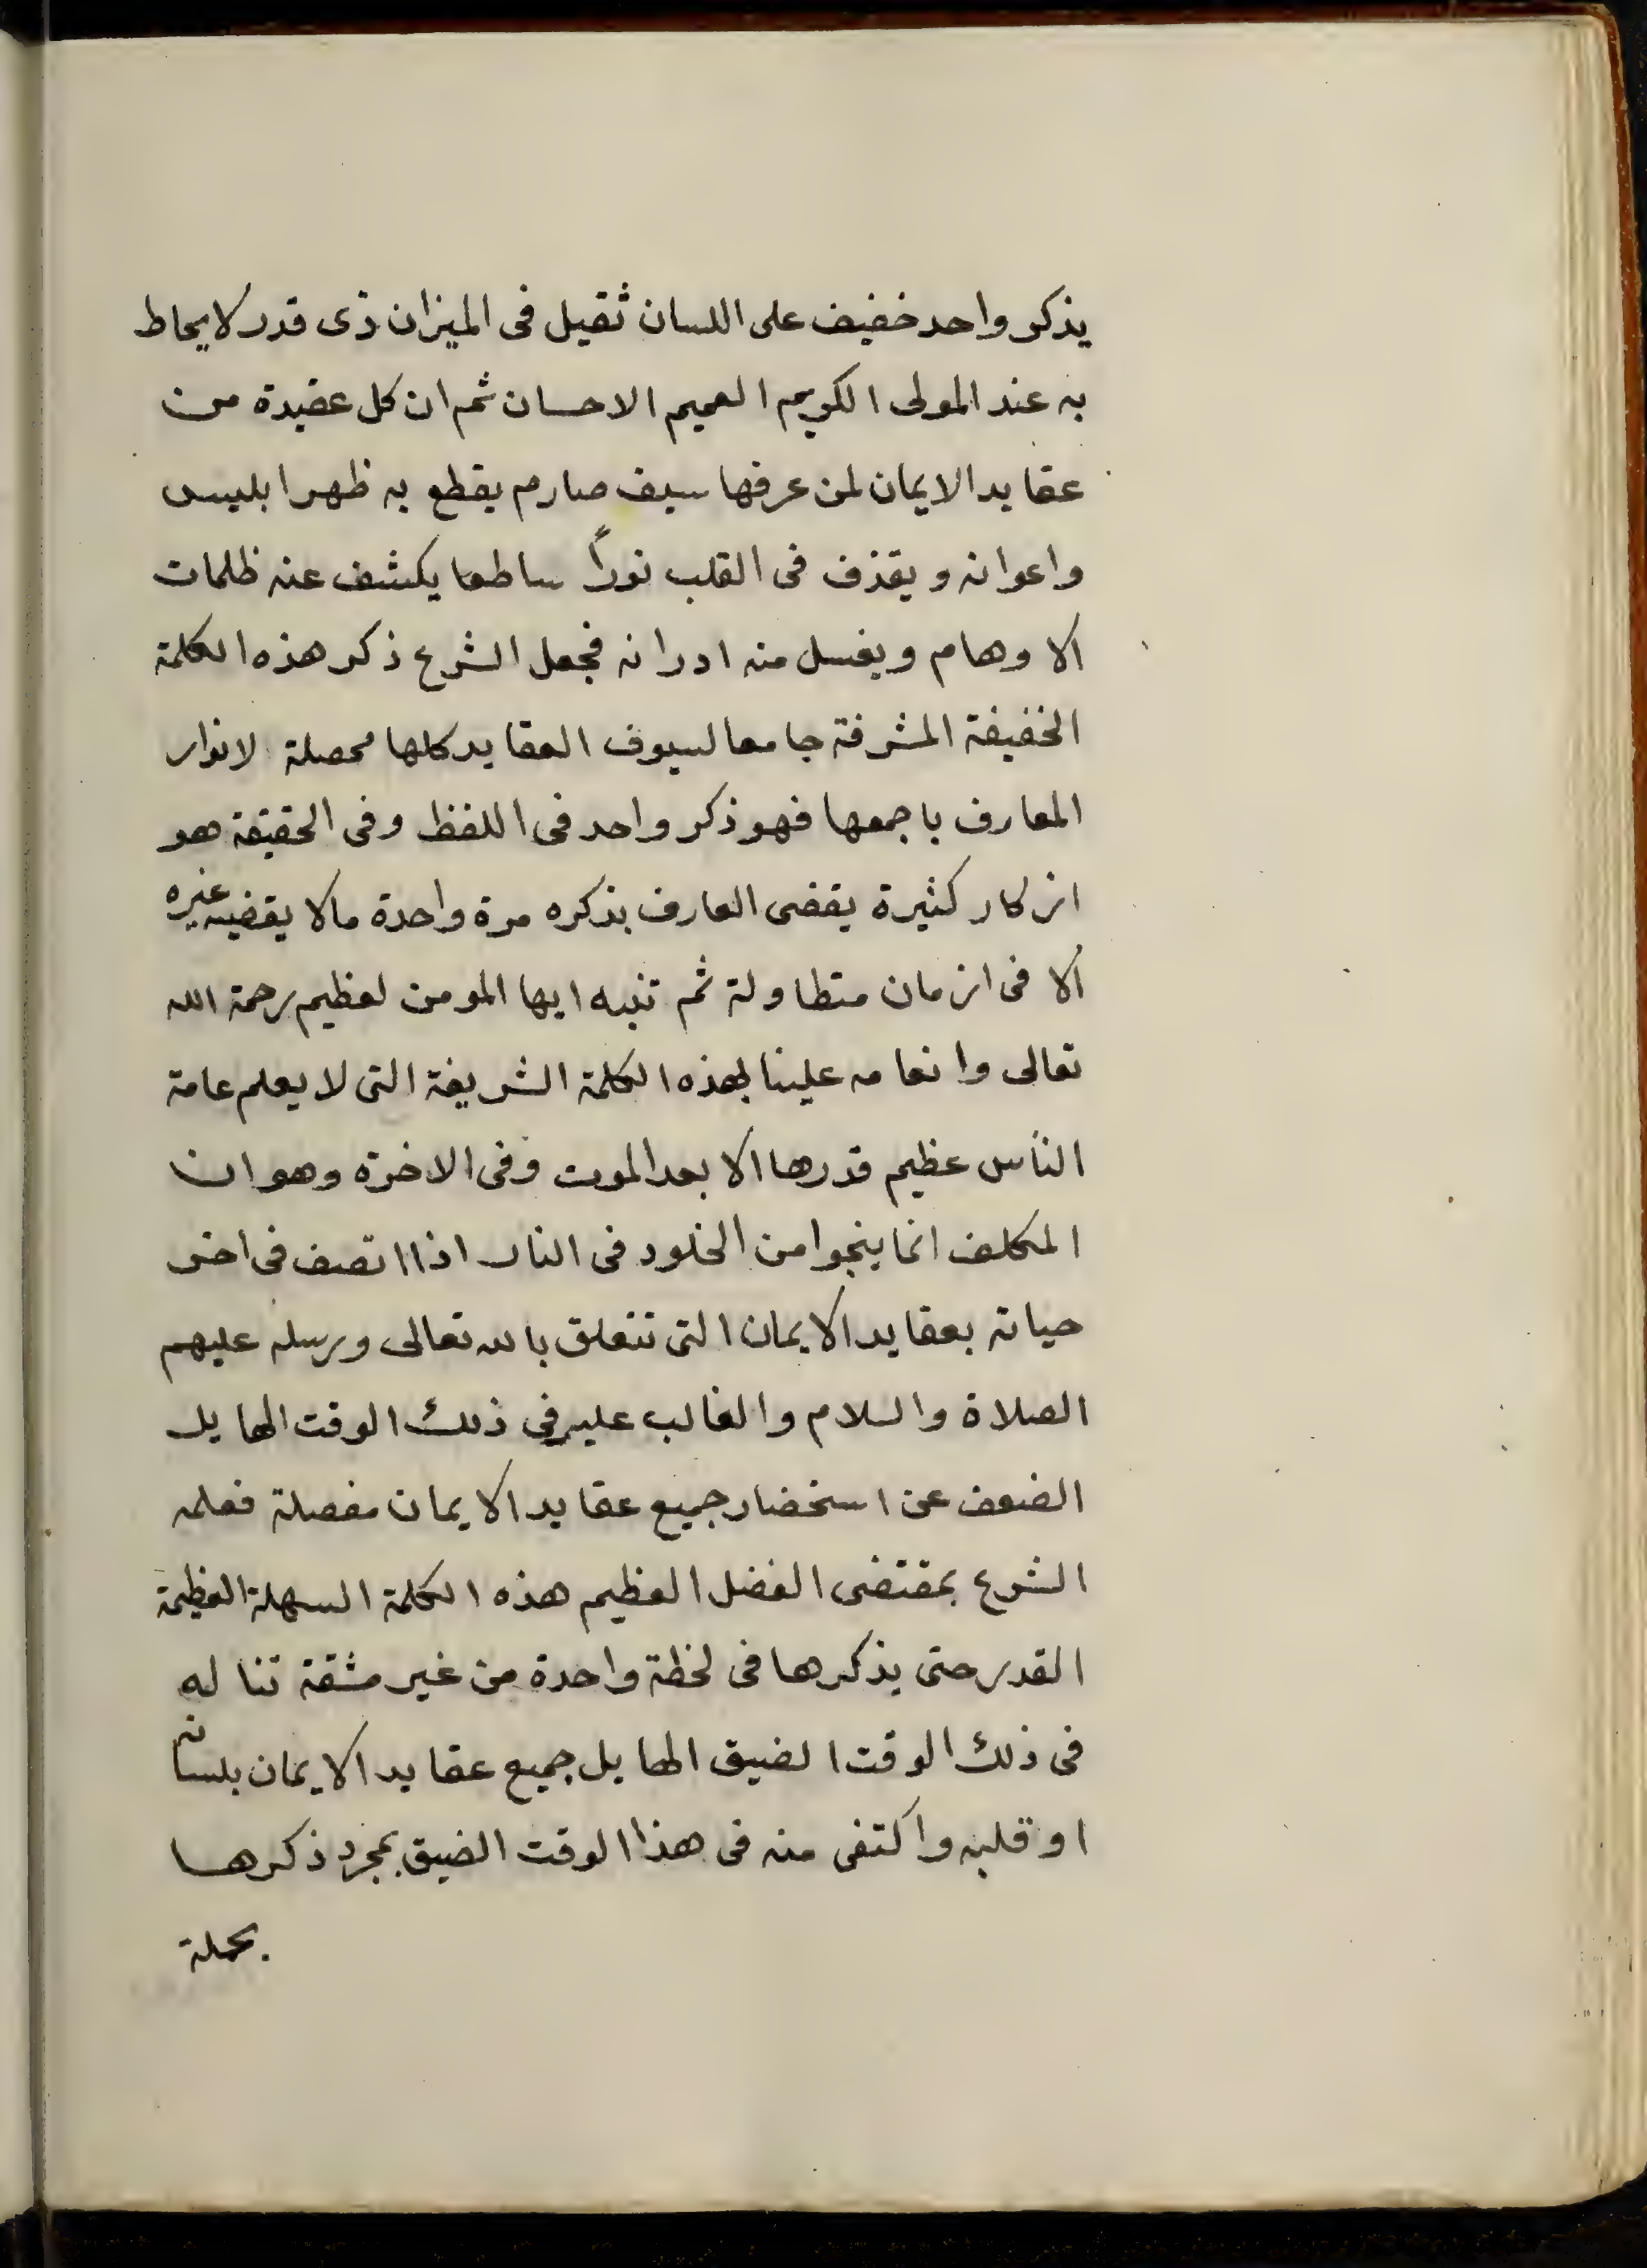 يذكر واحد خفيف على اللسان ثقيل فى الميزان ذى قدر لا يحاط
به عند المولى الكريم العميم الاحسان ثم ان كل عقيدة من
عقايد الايمان لمن عرفها سيف صارم يقطع به ظهر ابليس
واعوانه ويقذف فى القلب نوراً ساطعا يكشف عنه ظلمات
الاوهام ويغسل منه ادرانه فجعل الشرع ذكر هذه الكلمة
الخفيفة المشرفة جامعا لسيوف العقايد كلها محصلة لانوار
المعارف باجمعها فهو ذكر واحد فى اللفظ وفى الحقيقة هو
اذكار كثيرة يقضى العارف بذكره مرة واحدة مالا يقضيه غيره
الا فى ازمان متطاولة ثم تنبه ايها المومن لعظيم رحمة الله
تعالى وانعامه علينا بهذه الكلمة الشريفة التى لا يعلم عامة
الناس عظيم قدرها الا بعد الموت وفى الاخرة وهو ان
المكلف انما ينجوا من الخلود فى النار اذا اتصف فى اخر
حياته بعقايد الايمان التى تتعلق بالله تعالى ورسله عليهم
الصلاة والسلام والغالب عليه فى ذلك الوقت الهايل
الضعف عن استخضار جميع عقايد الايمان مفصلة فعلمه
الشرع بمقتضى الفضل العظيم هذه الكلمة السهلة العظيمة
القدر حتى يذكرها فى لخظة واحدة من غير مشقة تناله
فى ذلك الوقت الضيق الهايل جميع عقايد الايمان بلسانه
او قلبه واكتفى منه فى هذا الوقت الضيق بمجرد ذكرها
بجملة